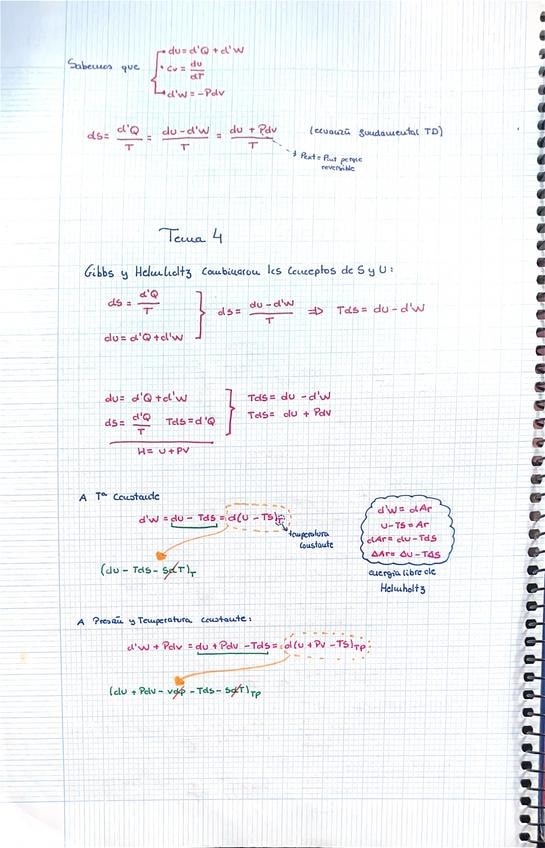 Sabemos que
dU = d'Q + d'W
Cv = dU/dT
d'W = -Pdv
ds = d'Q/T = dU - d'W/T = dU + Pdv/T (ecuación fundamental TD)
Pext = Pint porque
reversible
Tema 4
Gibbs y Helmholtz combinaron los conceptos de S y U:
ds = d'Q/T
dU = d'Q + d'W
ds = dU - d'W/T ⇒ Tds = dU - d'W
dU = d'Q + d'W
ds = d'Q/T Tds = d'Q
H = U + PV
Tds = dU - d'W
Tds = dU + Pdv
A Tª Constante
d'W = dU - Tds = d(U - TS)T
temperatura
constante
(dU - Tds - SdT)T
d'W = dAr
U - TS = Ar
dAr = dU - TdS
ΔAr = ΔU - TΔS
energía libre de
Helmholtz
A Presión y Temperatura constante:
d'W + Pdv = dU + Pdv - Tds = d(U + PV - TS)TP
(dU + Pdv - vdp - Tds - SdT)TP